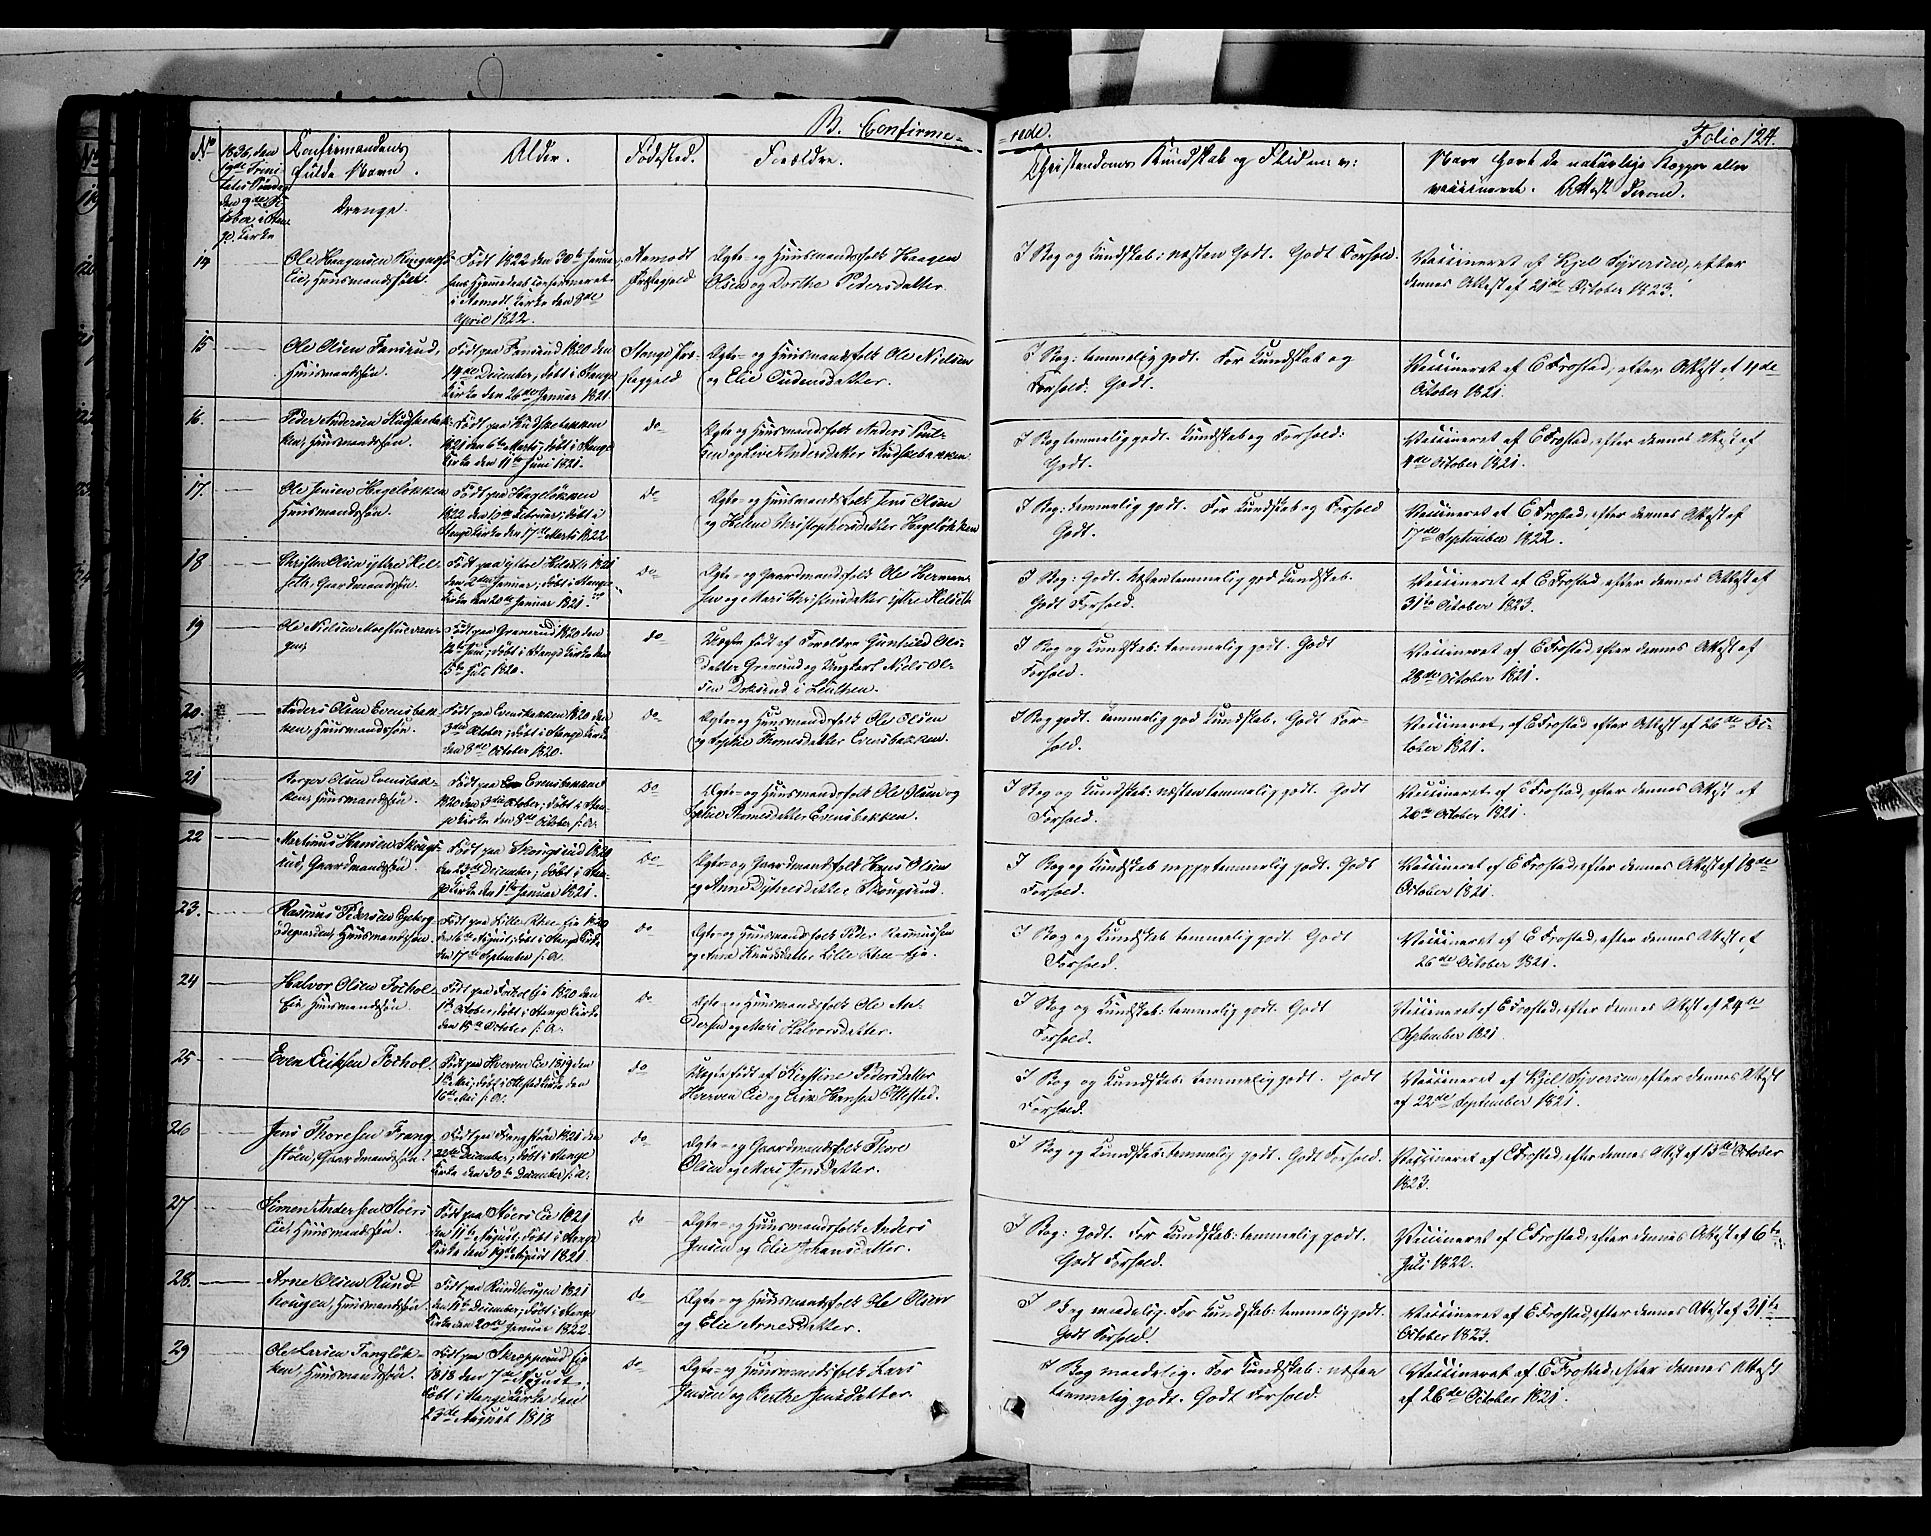 B. Confirme-
-rede.
Folio 124.
No
1836, den
Confirmandens
fulde Navn.
Drenge.
Alder.
Fødested.
Forældre.
Christendoms Kundskab og Flid m: v:
vaccineret.
14
Ole Haagensen
Eie, Huusmandssøn.
Født 1822 den 30te Janua-
i Aamodt Kirke den 8de
April 1822.
Aamodt
Præstegjeld
Ægte- og Huusmandsfolk Haagen
Olsen og Dorthe Pedersdatter.
I Bog og Kundskab: næsten Godt. Godt Forhold.
Vaccineret af Kjel Syversen, efter
dennes Attest af 21de October 1823.
15
Ole Olsen Fansrud,
Huusmandssøn.
Født paa Fansrud 1820 den
14de December, døbt i Stange
Kirke den 26de Januar 1821.
Stange Præ-
stegjeld
Ægte- og Huusmandsfolk Ole Nielsen
og Elie Gudensdatter.
I Bog: temmelig godt. For Kundskab og
Forhold. Godt.
Vaccineret af E Frostad, efter Attest af 4de
October 1821.
16.
Peder Andersen Kudskebak-
ken, Huusmandssøn.
Født paa Kudskebakken
1821 den 6te Marts; døbt i Stange
Kirke den 11te Juni 1821.
do
Ægte og Huusmandsfolk Anders Poul-
sen og Live Andersdatter Kudskebakken.
I Bog temmelig godt. Kundskab og Forhold:
Godt.
Vaccineret af E Frostad, efter dennes Attest af
4de October 1821.
17.
Ole Jensen Hageløkken
Huusmandssøn.
Født paa Hageløkken
1822 den Februar; døbt i
Stange Kirke den 17de Marts 1822
do
Ægte- og Huusmandsfolk Jens Olsen
og Helene Christophersdatter Hageløkken
I Bog: temmelig godt. For Kundskab og Forhold
Godt.
Vaccineret af E Frostad, efter dennes Attest af
17de September 1822.
18
Christen Olsen ytre Hel-
seth, Gaardmandssøn.
Født paa ytre Helseth 1821
den 2den Januar; døbt i Stange
Kirke den 20de Januar 1821.
do
Ægte- og Gaardmandsfolk Ole Herman-
sen og Mari Christensdatter ytre Helseth
I Bog: Godt. Næsten temmelig god Kundskab.
Godt Forhold.
Vaccineret af E Frostad, efter dennes Attest af
31te October 1823.
19
Ole Nielsen
Født paa Grønerud 1820 den
døbt i Stange Kirke den
15te Juli 1820.
do
Uægte født af Forældre Gunhild Ols-
datter Grønerud og Ungkarl Niels Ol-
sen Dokserud i Leuthen.
I Bog og Kundskab: temmelig godt. Godt
Forhold.
Vaccineret af E Frostad, efter dennes Attest af
28de October 1821.
20.
Anders Olsen Evensbak-
ken, Huusmandssøn.
Født paa Evensbakken 1820 den
3die October; døbt i Stange Kirke
den 8de October 1820.
do
Ægte- og Huusmandsfolk Ole Olsen
og Sophie Thomesdatter Evensbakken.
I Bog godt. Temmelig god Kundskab. Godt For-
hold.
Vaccineret, af E Frostad efter Attest af 26de Oc-
tober 1821.
21
Børger Olsen Evensbak-
ken, Huusmandssøn.
Født paa Evensbakken
1820 den 3die October; døbt i Stan-
ge Kirke den 8de October s: A.
do
Ægte- og Huusmandsfolk Ole Olsen og
Sophie Thomesdatter Evensbakken.
I Bog og Kundskab: næsten temmelig godt. Godt
Forhold.
Vaccineret af E Frostad, efter dennes Attest af
26de October 1821.
22
Martinus Hansen Skougs-
rud, Gaardmandssøn.
Født paa Skougsrud 1820
den 23de December, døbt i Stan-
ge Kirke den 1ste Januar 1821.
do
Ægte- og Gaardmandsfolk Hans Olsen
og Anne Syversdatter Skougsrud.
I Bog og Kundskab neppe temmelig godt. Godt
Forhold.
Vaccineret af E Frostad, efter dennes Attest af 18de
October 1821.
23.
Rasmus Pedersen
ødegaarden, Huusmandssøn.
Født paa Lille Rhee-Eje 1820
den 16de August; døbt i Stange Kirke
den 17de September s: A.
do
Ægte- og Huusmandsfolk Peder Rasmussen
og Anne Knudsdatter Lille Rhee-Eje.
I Bog og Kundskab temmelig godt. Godt
Forhold.
Vaccineret af E Frostad, efter dennes Attest af
26de October 1821.
24
Halvor Olsen Fockhol-
Eie Huusmandssøn.
Født paa Fockhol Eje 1820 den
October, døbt i Stange Kirke
den 15de October s: A.
do
Ægte og Huusmandsfolk Ole An-
dersen og Mari Halvorsdatter.
I Bog og Kundskab: temmelig godt. Godt
Forhold.
Vaccineret af E Frostad, efter dennes Attest af 24de
September 1821.
25
Even Eriksen Fockhol.
Født paa Hverven Eie 1819 den
Mai; døbt i Ottestad Kirke den
16de Mai s: A.
do
Uægte født af Kirstine Pedersdatter
Hverven Eie og Erik Hansen Ottestad.
I Bog og Kundskab: temmelig godt. Godt
Forhold.
Vaccineret af Kjel Syversen, efter dennes Attest
af 22de September 1821.
26
Jens Thoresen Frang-
støen, Gaardmandssøn.
Født paa Frangstøen 1821 den
22de December; døbt i Stange
Kirke den 30te December s: A.
do
Ægte- og Gaardmandsfolk Thore
Olsen og Mari Jensdatter.
I Bog og Kundskab: temmelig godt. Godt Forhold.
Vaccineret af E Frostad, efter dennes Attest af 13de October
1823.
27
Simen Andersen Støers
Eie, Huusmandssøn.
Født paa Støers Eie 1821
den 11te August; døbt i Stange
Kirke den 19de August 1821
do
Ægte- og Huusmandsfolk Anders
Jensen og Elie Johansdatter.
I Bog: Godt. For Kundskab: temmelig godt.
Godt Forhold.
Vaccineret af E Frostad, efter dennes Attest af 6te
Juli 1822.
28.
Arne Olsen Rund-
hougen, Huusmandssøn.
Født paa Rundhougen 1821
den 11te December; døbt i Stange
Kirke den 20de Januar 1822
do
Ægte- og Huusmandsfolk Ole Olsen
og Elie Arnesdatter.
I Bog maadelig. For Kundskab: temmelig godt.
Godt Forhold.
Vaccineret af E Frostad, efter dennes Attest af 31te
October 1823.
29
Ole Larsen Tangløk-
ken, Huusmandssøn.
Født paa Skropperud Eje
1818 den 7de August.
døbt i Stange Kirke den
23de August 1818
do
Ægte- og Huusmandsfolk Lars
Jensen og Berthe Jensdatter.
I Bog maadelig. For Kundskab: næsten
temmelig godt. Godt Forhold.
Vaccineret af E Frostad, efter dennes Attest
af 26de October 1821.